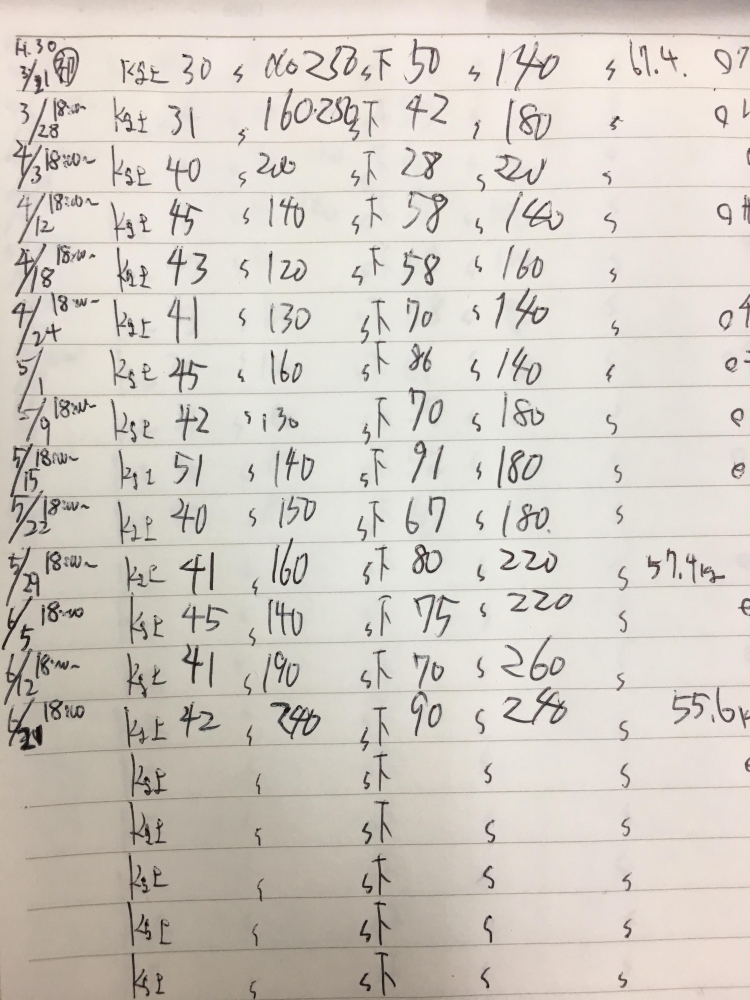 H.30
3/21 初 kg上 30 s 250 s下 50 s 140 s 67.4.
3/28 18:00~ kg上 31 s 160.250 s下 42 s 180 s
4/3 18:00~ kg上 40 s 200 s下 28 s 220 s
4/12 18:00~ kg上 45 s 140 s下 58 s 140 s
4/18 18:00~ kg上 43 s 120 s下 58 s 160 s
4/24 18:00~ kg上 41 s 130 s下 70 s 140 s
5/1 kg上 45 s 160 s下 86 s 140 s
5/9 18:00~ kg上 42 s 130 s下 70 s 180 s
5/15 18:00~ kg上 51 s 140 s下 91 s 180 s
5/22 18:00~ kg上 40 s 150 s下 67 s 180 s
5/29 18:00~ kg上 41 s 160 s下 80 s 220 s 57.4kg
6/5 18:00 kg上 45 s 140 s下 75 s 220 s
6/12 18:00~ kg上 41 s 190 s下 70 s 260 s
6/21 18:00 kg上 42 s 240 s下 90 s 240 s 55.6k
kg上 s s下 s s
kg上 s s下 s s
kg上 s s下 s s
kg上 s s下 s s
kg上 s s下 s s